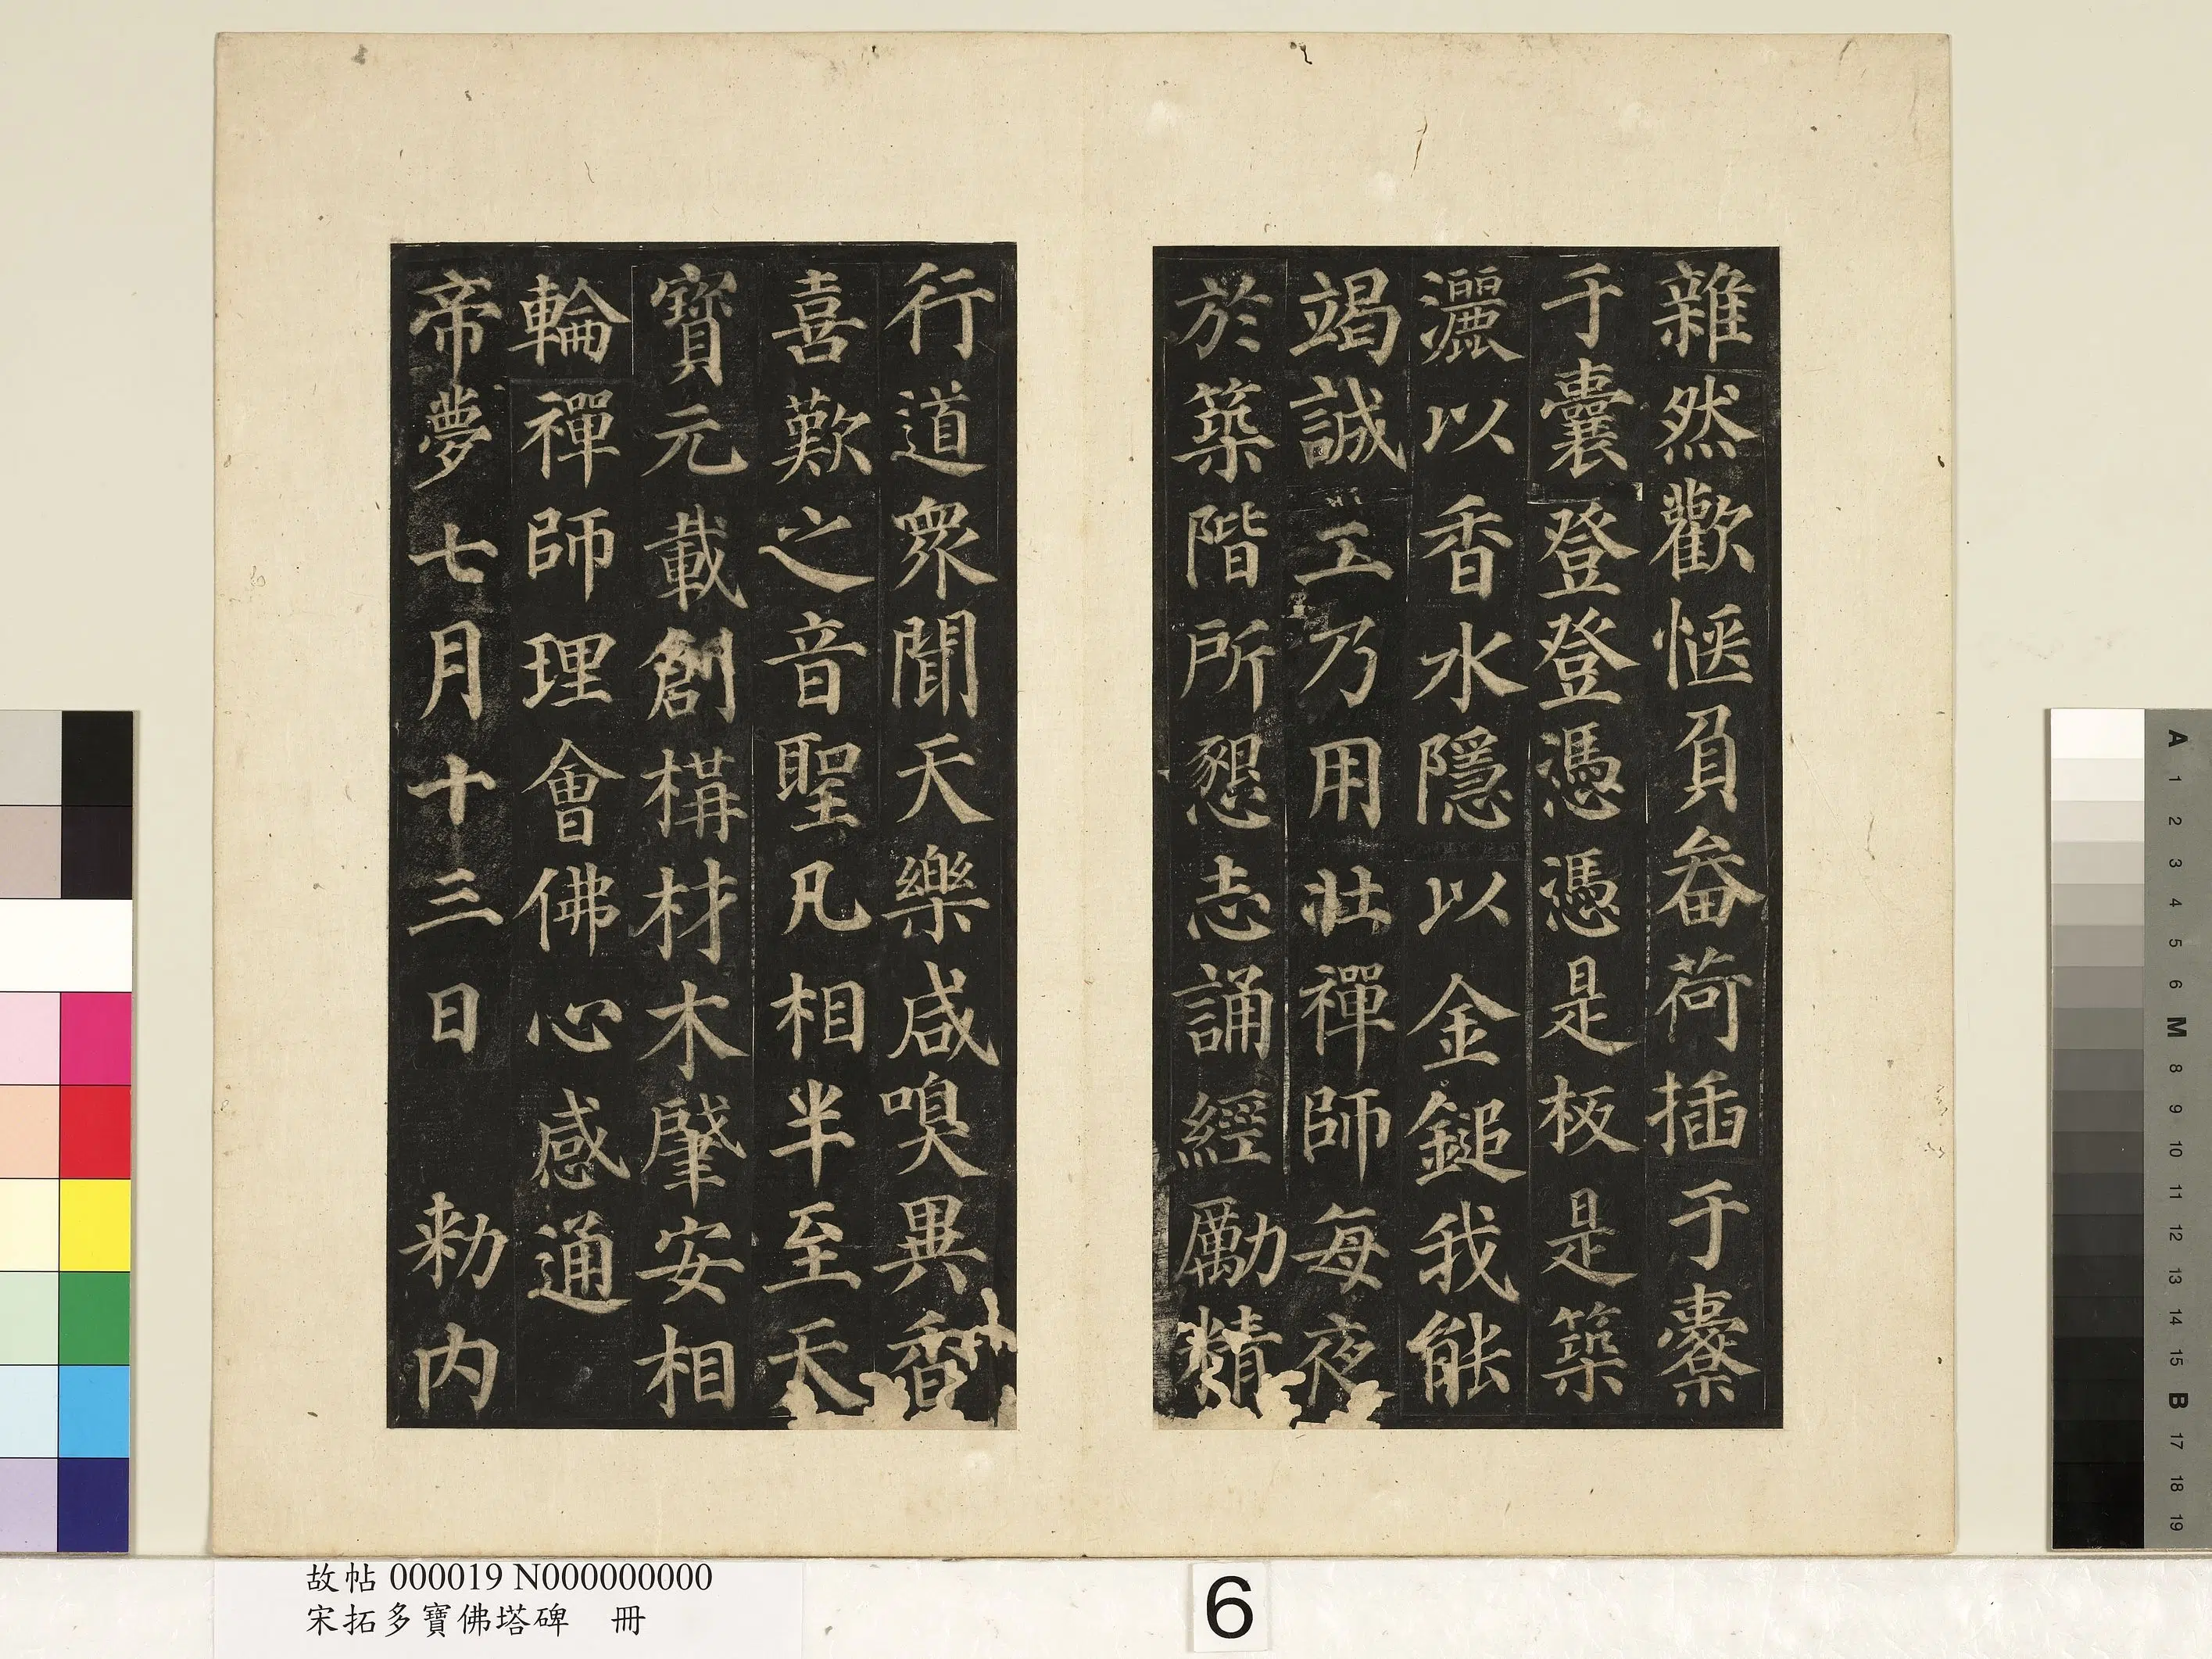 雜然歡愜負畚荷插于橐
于囊登登憑憑是板是築
灑以香水隱以金鎚我能
竭誠工乃用壯禪師每夜
於築階所懇志誦經勵精
行道衆聞天樂咸嗅異香
喜歎之音聖凡相半至天
寶元載創構材木肇安相
輪禪師理會佛心感通
帝夢七月十三日 勑内
故帖 000019 N000000000
宋拓多寶佛塔碑 冊
6
A
1
2
3
4
5
6
M
8
9
10
11
12
13
14
15
B
17
18
19